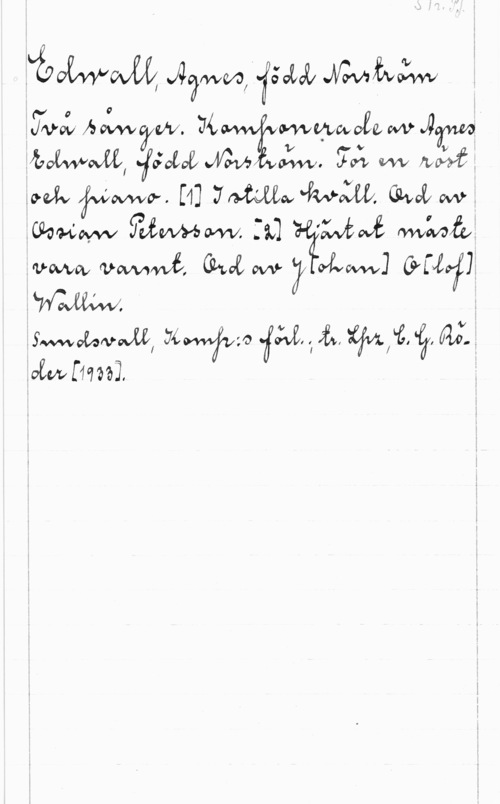 Edwall, Agnes, född Norström
Två sånger. Komponerade av Agnes
Edwall, född Norström. För en röst
och piano. [1] I stilla kväll. Ord av
Ossian Petersson. [2] Hjärtat måste
vara varmt. Ord av J[ohan] O[lof]
Wallin.
Sundsvall, Komp:s förl.; tr. Lpz, C. G. Rö-
der [1933].